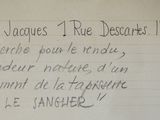 Jacques 1 Rue Descartes
erche pour le rendu,
deur nature, d'un
ment de la tapisserie
LE SANGLIER"